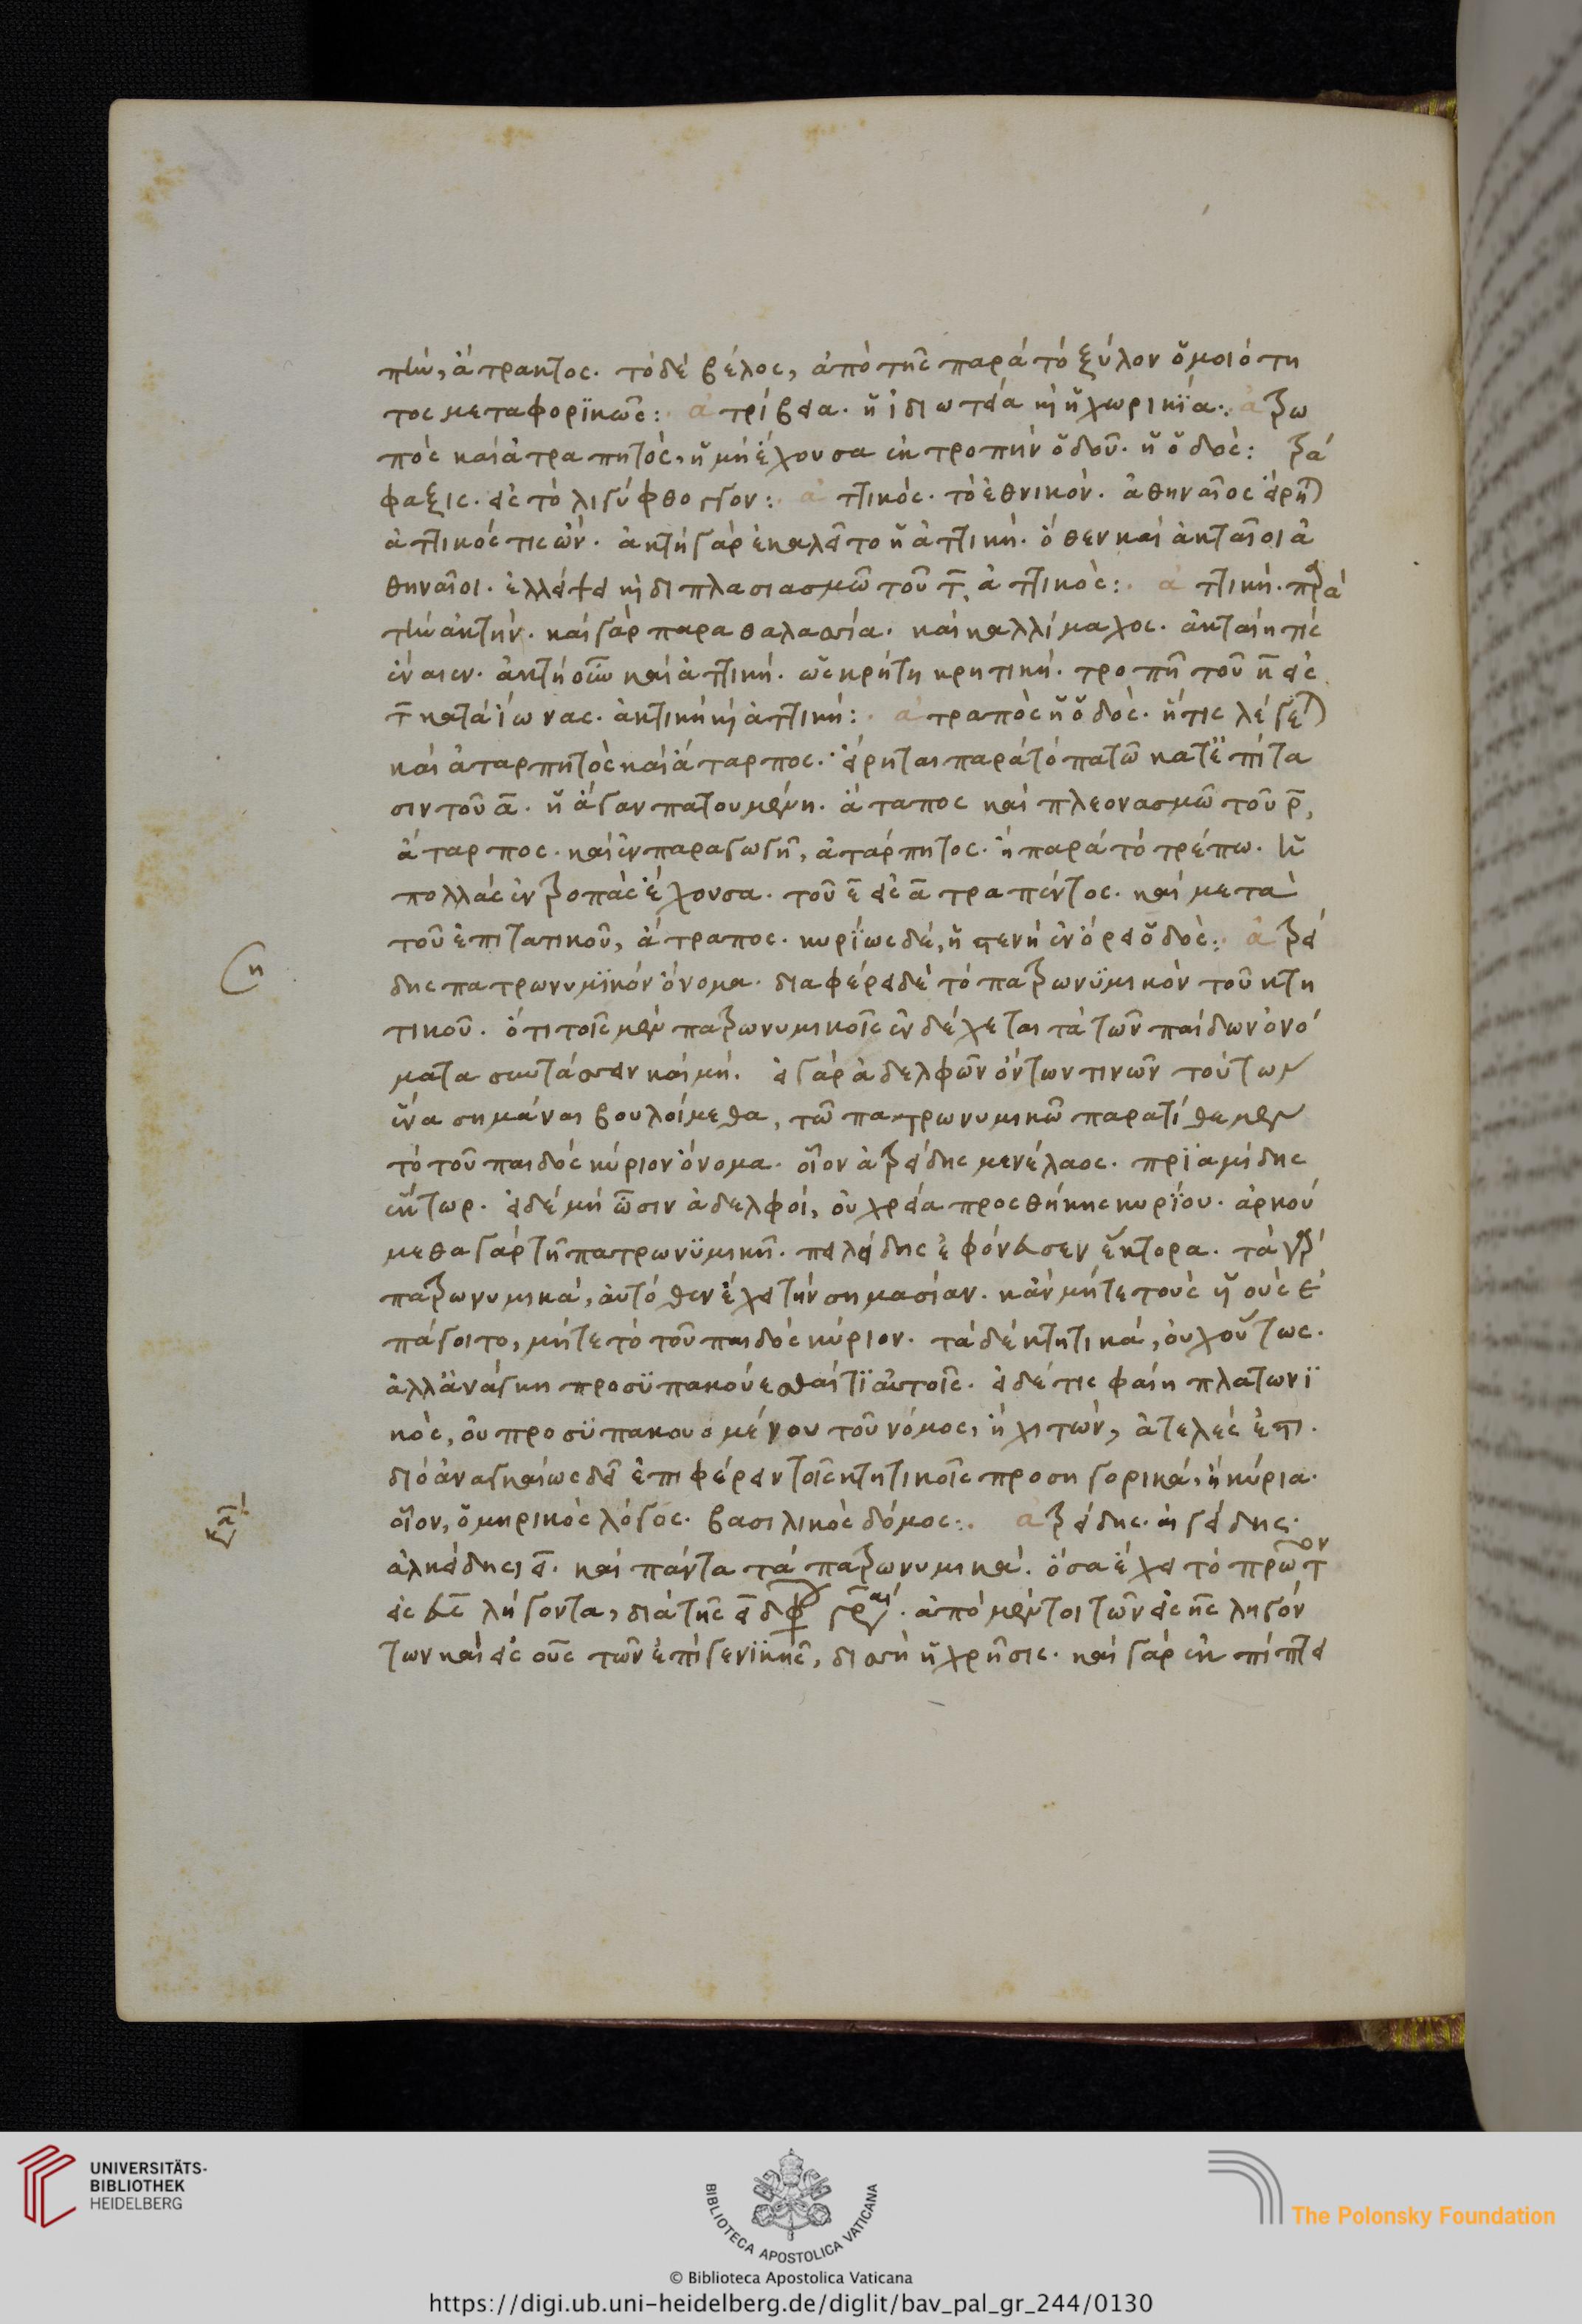 πτὼν, ἄτρακτος. τὸ δὲ βέλος, ἀπὸ τῆς παρὰ τὸ ξύλον ὁμοιότη
τος μεταφορϊκῶς: ἀτρίβεια. ἡ ἰδιωτεία κὶ ἡ χωρικϊα: ἀτρω
πὸς καὶ ἀτραπητὸς, ἡ μὴ ἔχουσα ἐκτροπὴν ὁδοῦ. ἡ ὁδὸς: τρά
φαξις. εἰς τὸ λιγύφθογγον: ἀττικός. τὸ ἐθνικόν. ἀθηναῖος εἴρηται
ἀττικός τις ὤν. ἀκτὴ γὰρ ἐκαλεῖτο ἡ ἀττική. ὅθεν καὶ ἀκταῖοι ἀ
θηναῖοι. ἐλλείψει κὶ διπλασιασμῶ τοῦ τ̄, ἀττικὸς: ἀττική. παρὰ
τὴν ἀκτήν. καὶ γὰρ παραθαλασσία. καὶ καλλίμαχος. ἀκταίη τίς
ἔναιεν. ἀκτὴ οὖν καὶ ἀττική. ὡς κρήτη κρητική. τροπῆ τοῦ κ̄ εἰς
τ̄ κατὰ ἴωνας. ἀκτικὴ κὶ ἀττική: ἀτραπὸς ἡ ὁδὸς. ἥτις λέγεται
καὶ ἀταρπητὸς καὶ ἄταρπος. εἴρηται παρὰ τὸ πατῶ κατ' ἐπίτα
σιν τοῦ ᾱ. ἡ ἄγαν πατουμένη. ἄταπος καὶ πλεονασμῶ τοῦ ρ̄,
ἄταρπος. καὶ ἐν παραγωγῆ, ἀτάρπητος. ἢ παρὰ τὸ τρέπω. ἡ
πολλὰς ἐντροπὰς ἔχουσα. τοῦ ε̄ εἰς ᾱ τραπέντος. καὶ μετὰ
τοῦ ἐπιτατικοῦ, ἄτραπος. κυρίως δέ, ἡ στενὴ ἐν ὄρει ὁδὸς: ἀτρεί
δης πατρωνυμϊκὸν ὄνομα. διαφέρει δὲ τὸ πατρωνϋμικὸν τοῦ κτη
τικοῦ. ὅτι τοῖς μὲν πατρωνυμικοῖς ἐνδέχεται τὰ τῶν παίδων ὀνό
ματα συντάσσειν καὶ μή. εἰ γὰρ ἀδελφῶν ὄντων τινῶν τούτων
ἕνα σημᾶναι βουλοίμεθα, τῶ πατρωνυμικῶ παρατίθεμεν
τὸ τοῦ παιδὸς κύριον ὄνομα. οἷον ἀτρείδης μενέλαος. πρϊαμίδης
ἕκτωρ. εἰ δὲ μὴ ὦσιν ἀδελφοί, οὐ χρεία προσθήκης κυρίου. ἀρκού
μεθα γὰρ τῆ πατρωνϋμικῆ. πηλείδης ἐφόνευσεν ἕκτορα. τὰ γὰρ
πατρωνυμικά, αὐτόθεν ἔχει τὴν σημασίαν. κἂν μήτε τοὺς ἡ οὺς ἐ
πάγοιτο, μήτε τὸ τοῦ παιδὸς κύριον. τὰ δὲ κτητικά, οὐχ οὕτως.
ἀλλ' ἀνάγκη προσϋπακούεσθαί τϊ αὐτοῖς. εἰ δέ τις φαίη πλατωνϊ
κὸς, οὐ προσϋπακουομένου τοῦ νόμος, ἢ χιτὼν, ἀτελὲς ἐστι.
διὸ ἀναγκαίως δεῖ ἐπιφέρειν τοῖς κτητικοῖς προσηγορικά, ἢ κύρια.
οἷον, ὁμηρικὸς λόγος. βασιλικὸς δόμος: ἀτρείδης. αἰγείδης.
ἀλκείδης, ει. καὶ πάντα τὰ πατρωνυμικά. ὅσα ἔχει τὸ πρωτότ
εἰς ευς λήγοντα, διὰ τῆς ει διφ γράφεται. ἀπὸ μέντοι τῶν εἰς ης ληγόν
των καὶ εἰς ους τῶν ἐπὶ γενϊκῆς, δισσὴ ἡ χρῆσις. καὶ γὰρ ἐκπίπτει
UNIVERSITÄTS-
BIBLIOTHEK
HEIDELBERG
BIBLIOTECA APOSTOLICA VATICANA
The Polonsky Foundation
© Biblioteca Apostolica Vaticana
https://digi.ub.uni-heidelberg.de/diglit/bav_pal_gr_244/0130